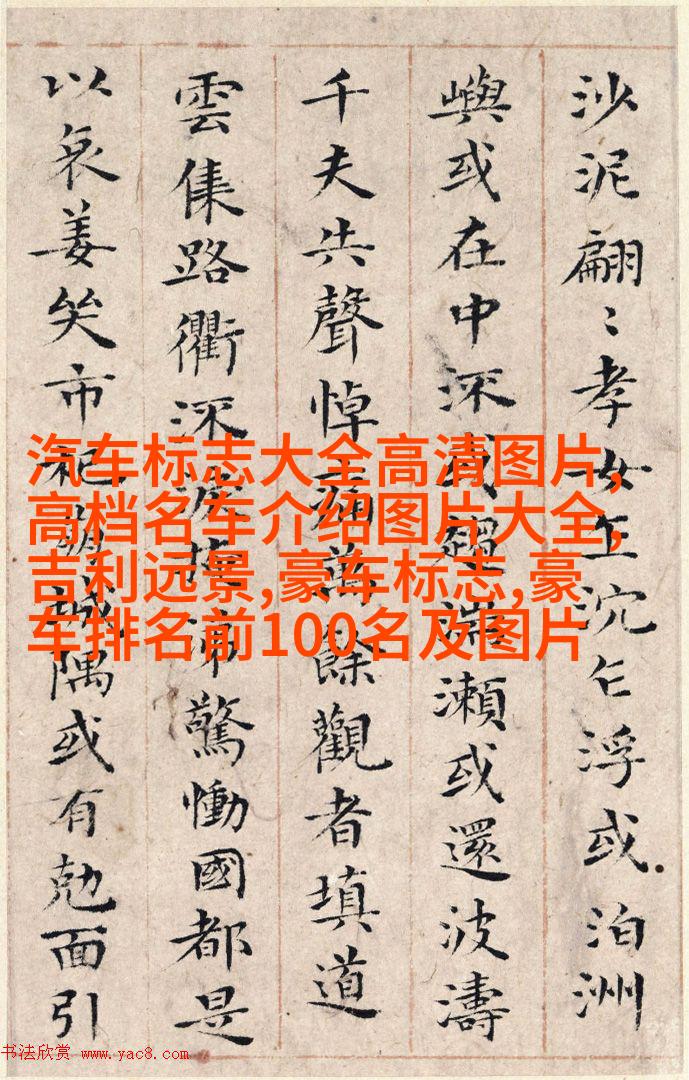 沙泥翩〻孝女乍沉乍浮或泊洲
嶼或在中流或趨湍瀨或還波濤
千夫失聲悼痛萬餘觀者填道
雲集路衢流淚掩涕驚慟國都是
以哀姜哭市杞崩城隅或有尅面引
汽车标志大全高清图片,
高档名车介绍图片大全,
吉利远景,豪车标志,豪
车排名前100名及图片
书法欣赏 www.yac8.com